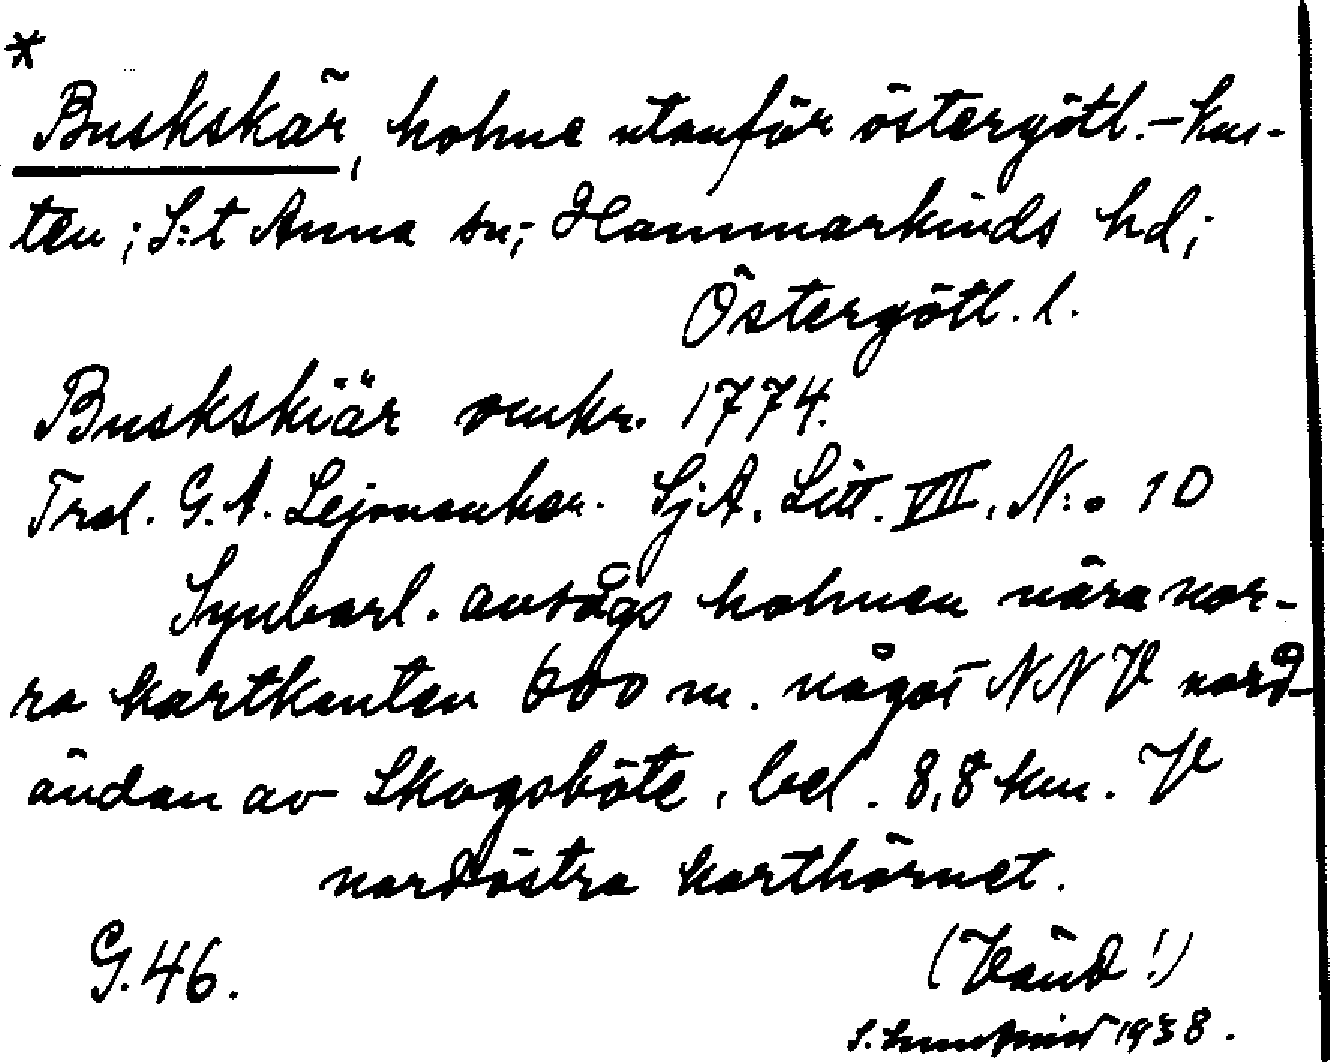 *
Buskskär, holme utanför östergötl.-kus-
ten; S:t Anna sn; Hammarkinds hd;
Östergötl. l.
Buskskiär omkr. 1774.
Trol. G. A. Lejonankar. SjA. Litt. VII. N:o 10
Synbarl. avsågs holmen nära nor-
ra kartkanten 600 m. något NNV nord-
ändan av Skogsböte, bel. 8,8 km. V
nordöstra karthörnet.
G. 46.
(Vänd!)
S. 1938.